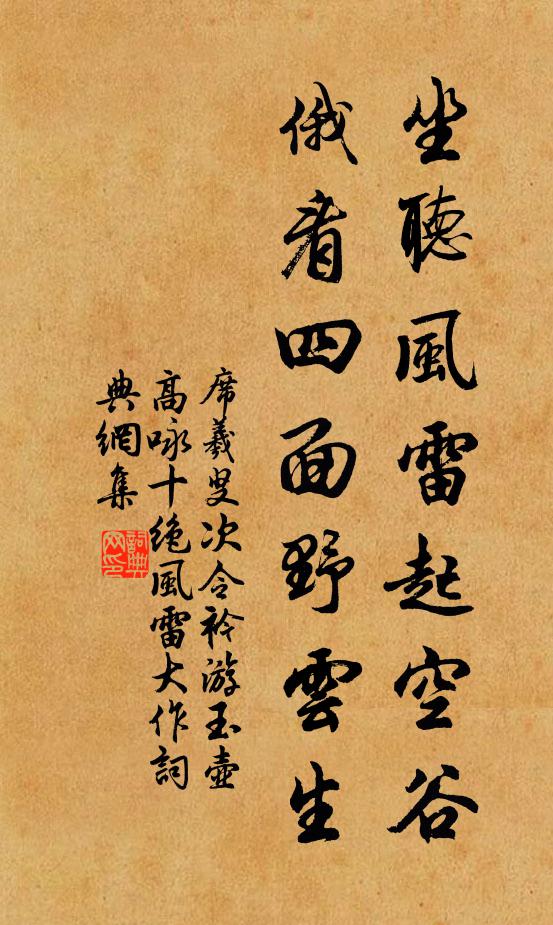 坐聽風雷起空谷
俄看四面野雲生
席羲叟次令衿游玉壺
高咏十絶風雷大作詞
典網集
詞典網印